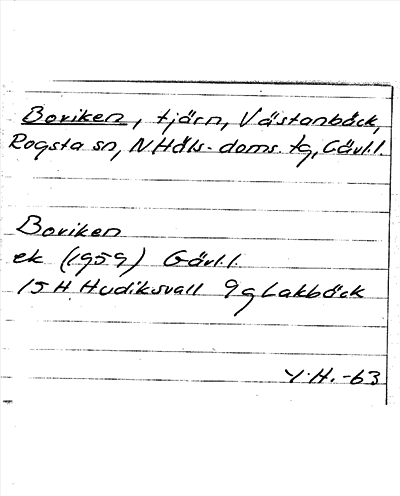 Boviken, tjärn, Västanbäck,
Rogsta sn, NHäls. doms. tg, Gävl.l.
Boviken
ek (1959) Gävl.l.
15 H Hudiksvall 9g Lakbäck
Y.H. -63